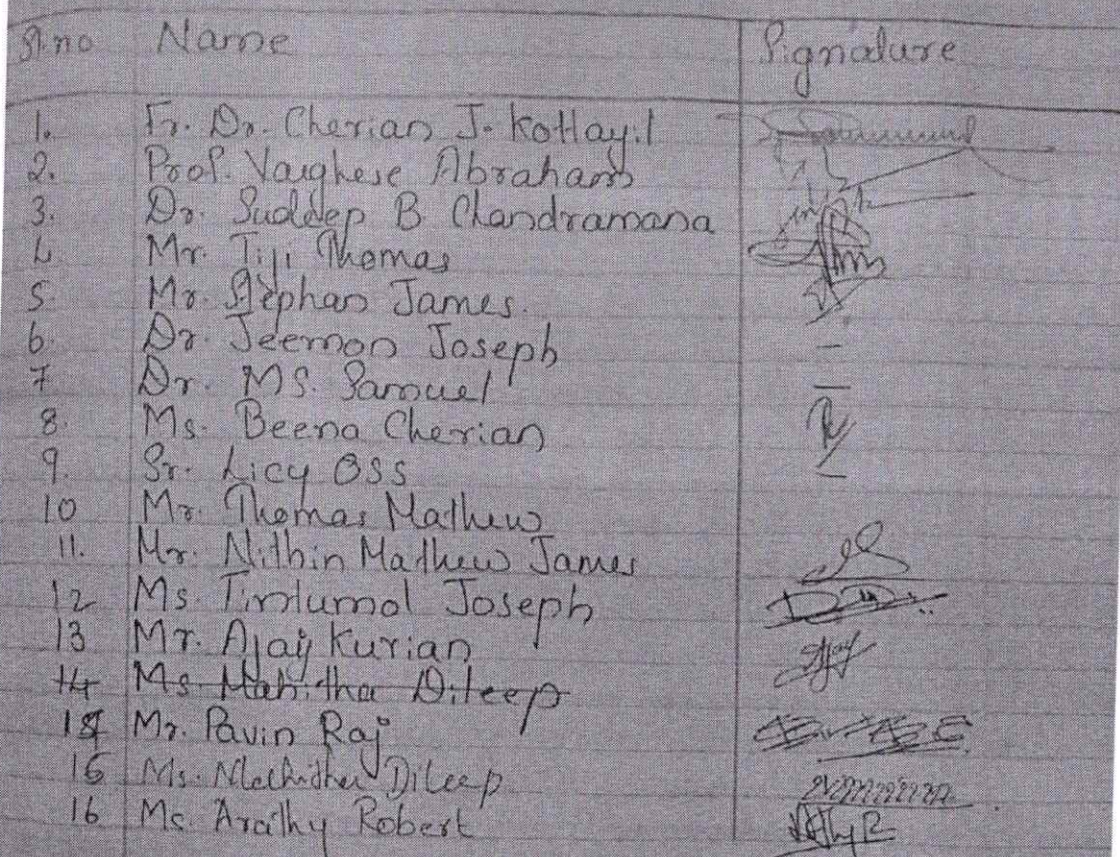 Sl.no Name Signature
1. Fr. Dr. Cherian J. Kottayil
2. Prof. Varghese Abraham
3. Dr. Sudeep B Chandramana
4 Mr. Tiji Thomas
5. Mr. Stephan James.
6. Dr. Jeemon Joseph –
7 Dr. MS. Samuel –
8. Ms. Beena Cherian
9. Sr. Licy OSS –
10 Mr. Thomas Mathew
11. Mr. Nithin Mathew James
12 Ms. Tintumol Joseph
13 Mr. Ajay Kurian
14 Ms Mahitha Dileep
Mr. Pavin Raj
16 Ms. Dileep
16 Ms. Arathy Robert